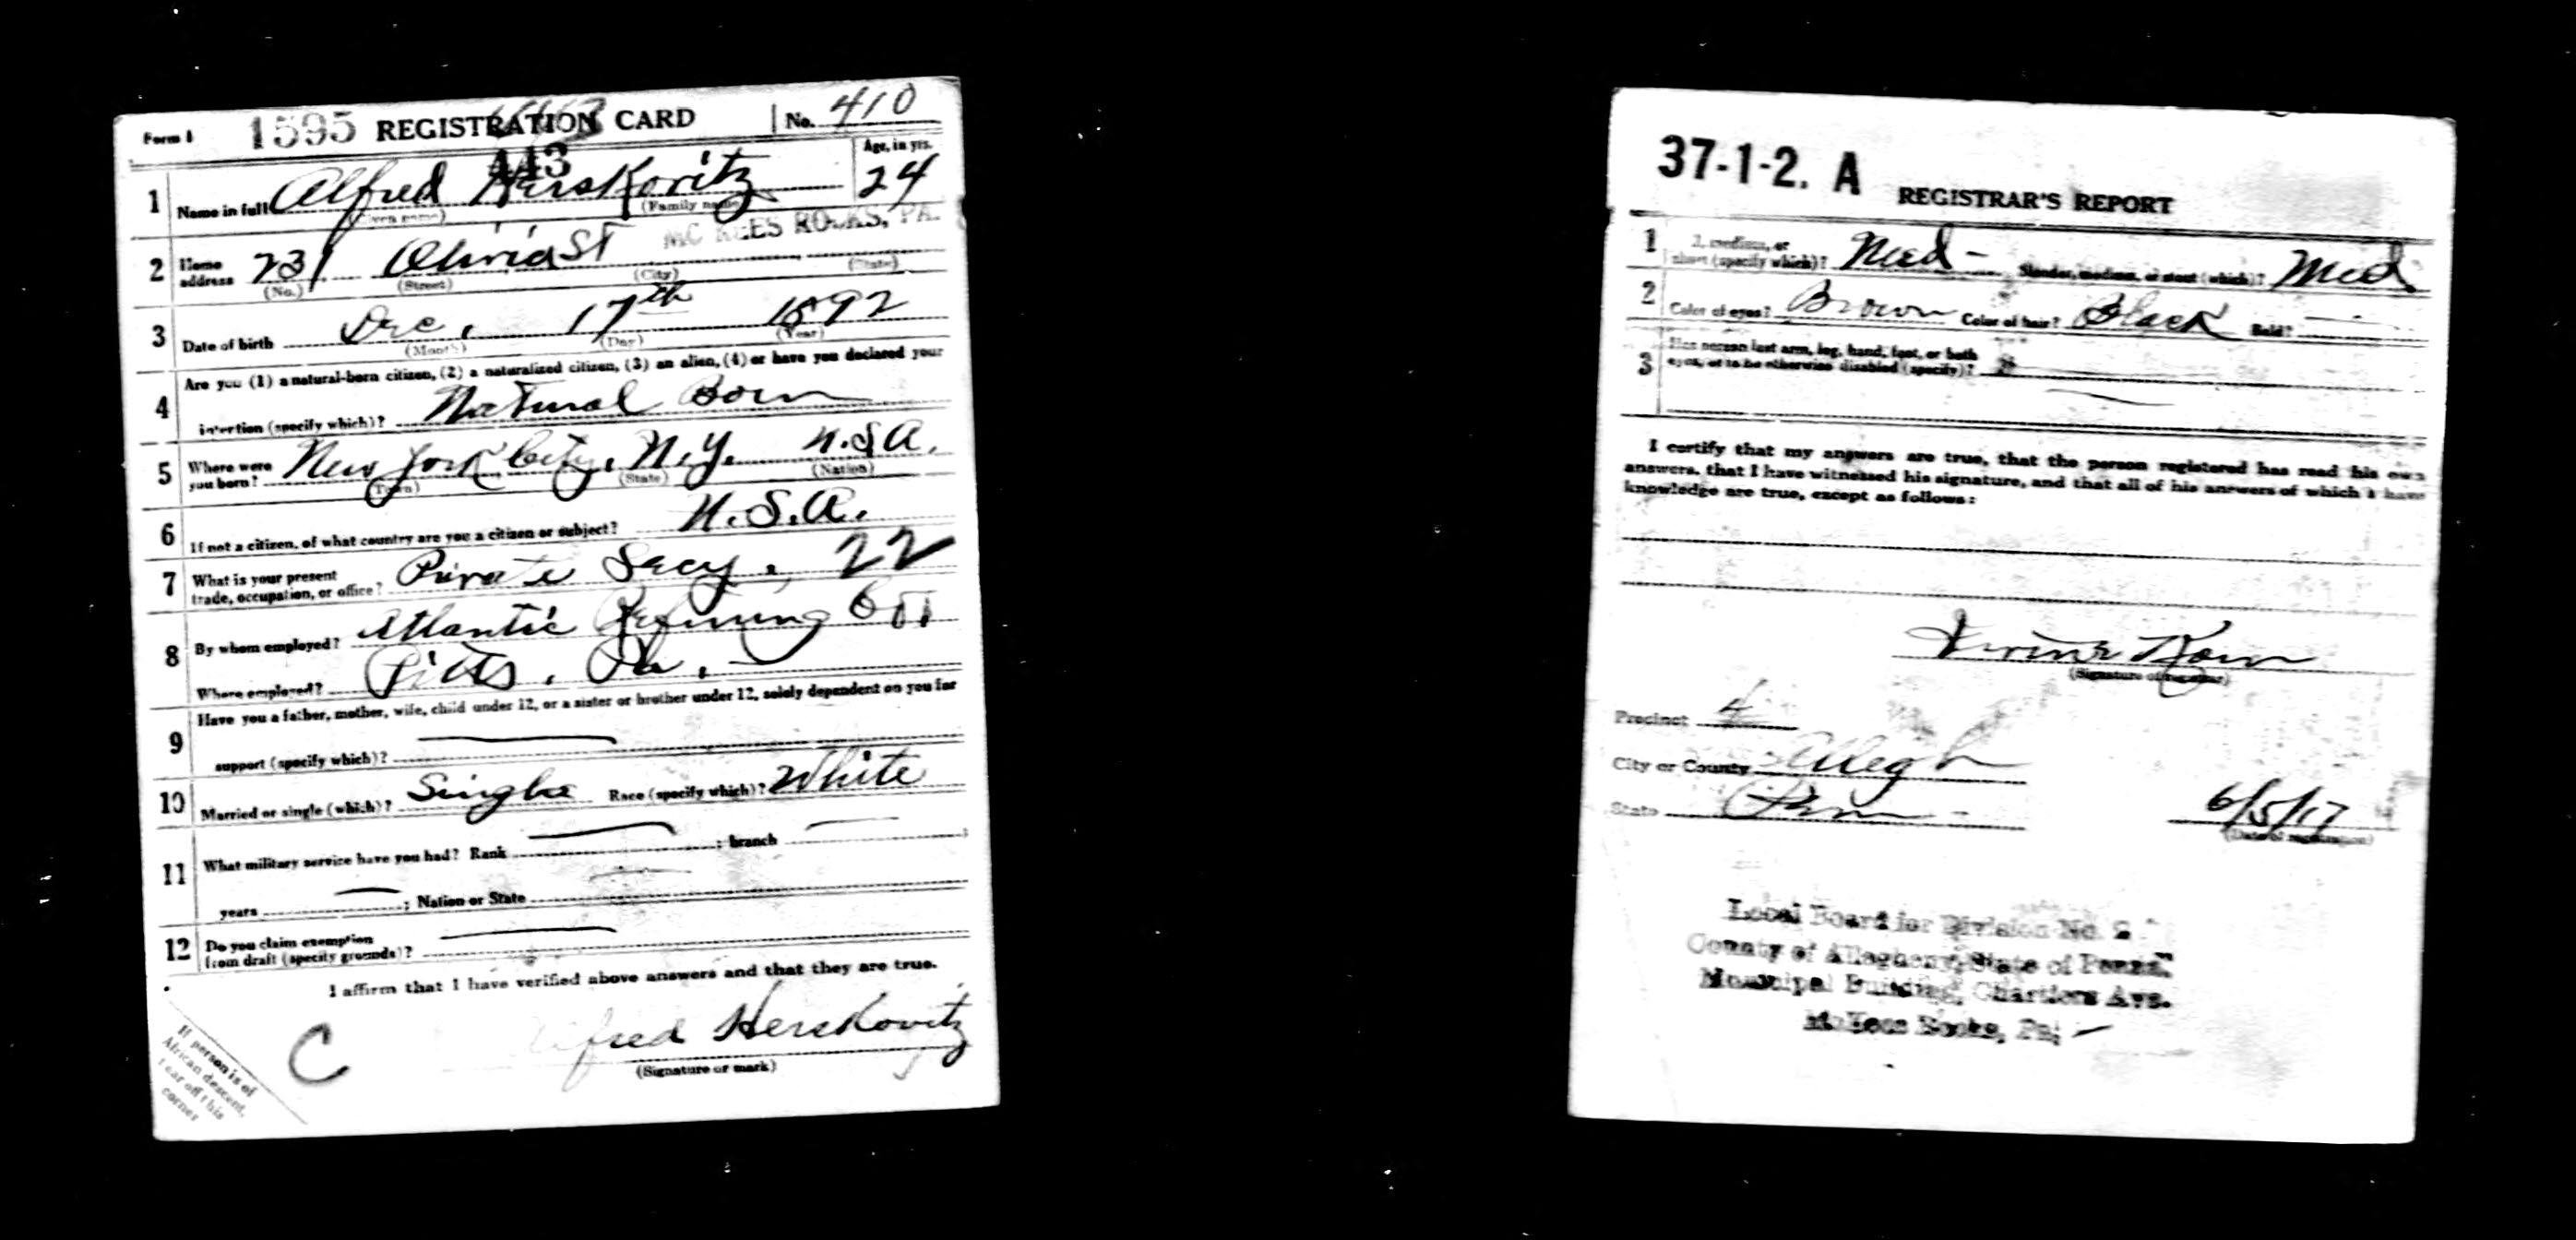 Form 1 1595 REGISTRATION CARD No. 410
443
1 Name in full Alfred Herskovitz Age, in yrs. 24
(Given name) (Family name)
MC KEES ROCKS, PA.
2 Home address 231 Olivia St
(No.) (Street) (City) (State)
3 Date of birth Dec. 17th 1892
(Month) (Day) (Year)
4 Are you (1) a natural-born citizen, (2) a naturalized citizen, (3) an alien, (4) or have you declared your
intention (specify which)? Natural Born
5 Where were you born? New York City, N.Y. U.S.A.
(Town) (State) (Nation)
6 If not a citizen, of what country are you a citizen or subject? U.S.A.
7 What is your present trade, occupation, or office? Private Secy. 22
8 By whom employed? Atlantic Refining Co.
Where employed? Pitts. Pa.
9 Have you a father, mother, wife, child under 12, or a sister or brother under 12, solely dependent on you for
support (specify which)?
10 Married or single (which)? Single Race (specify which)? White
11 What military service have you had? Rank ; branch
years ; Nation or State
12 Do you claim exemption from draft (specify grounds)?
I affirm that I have verified above answers and that they are true.
C
Alfred Herskovitz
(Signature or mark)
If person is of
African descent,
tear off this
corner
37-1-2. A
REGISTRAR'S REPORT
1 medium, or short (specify which)? Med - Slender, medium, or stout (which)? Med
2 Color of eyes? Brown Color of hair? Black Bald?
3 Has person lost arm, leg, hand, foot, or both
eyes, or is he otherwise disabled (specify)?
I certify that my answers are true, that the person registered has read his own
answers, that I have witnessed his signature, and that all of his answers of which I have
knowledge are true, except as follows:
(Signature of registrar)
Precinct 4
City or County Allegh
State Penn - 6/5/17
(Date of registration)
Local Board for Division No. 2
County of Allegheny, State of Penna.
Municipal Building, Chartiers Ave.
McKees Rocks, Pa.